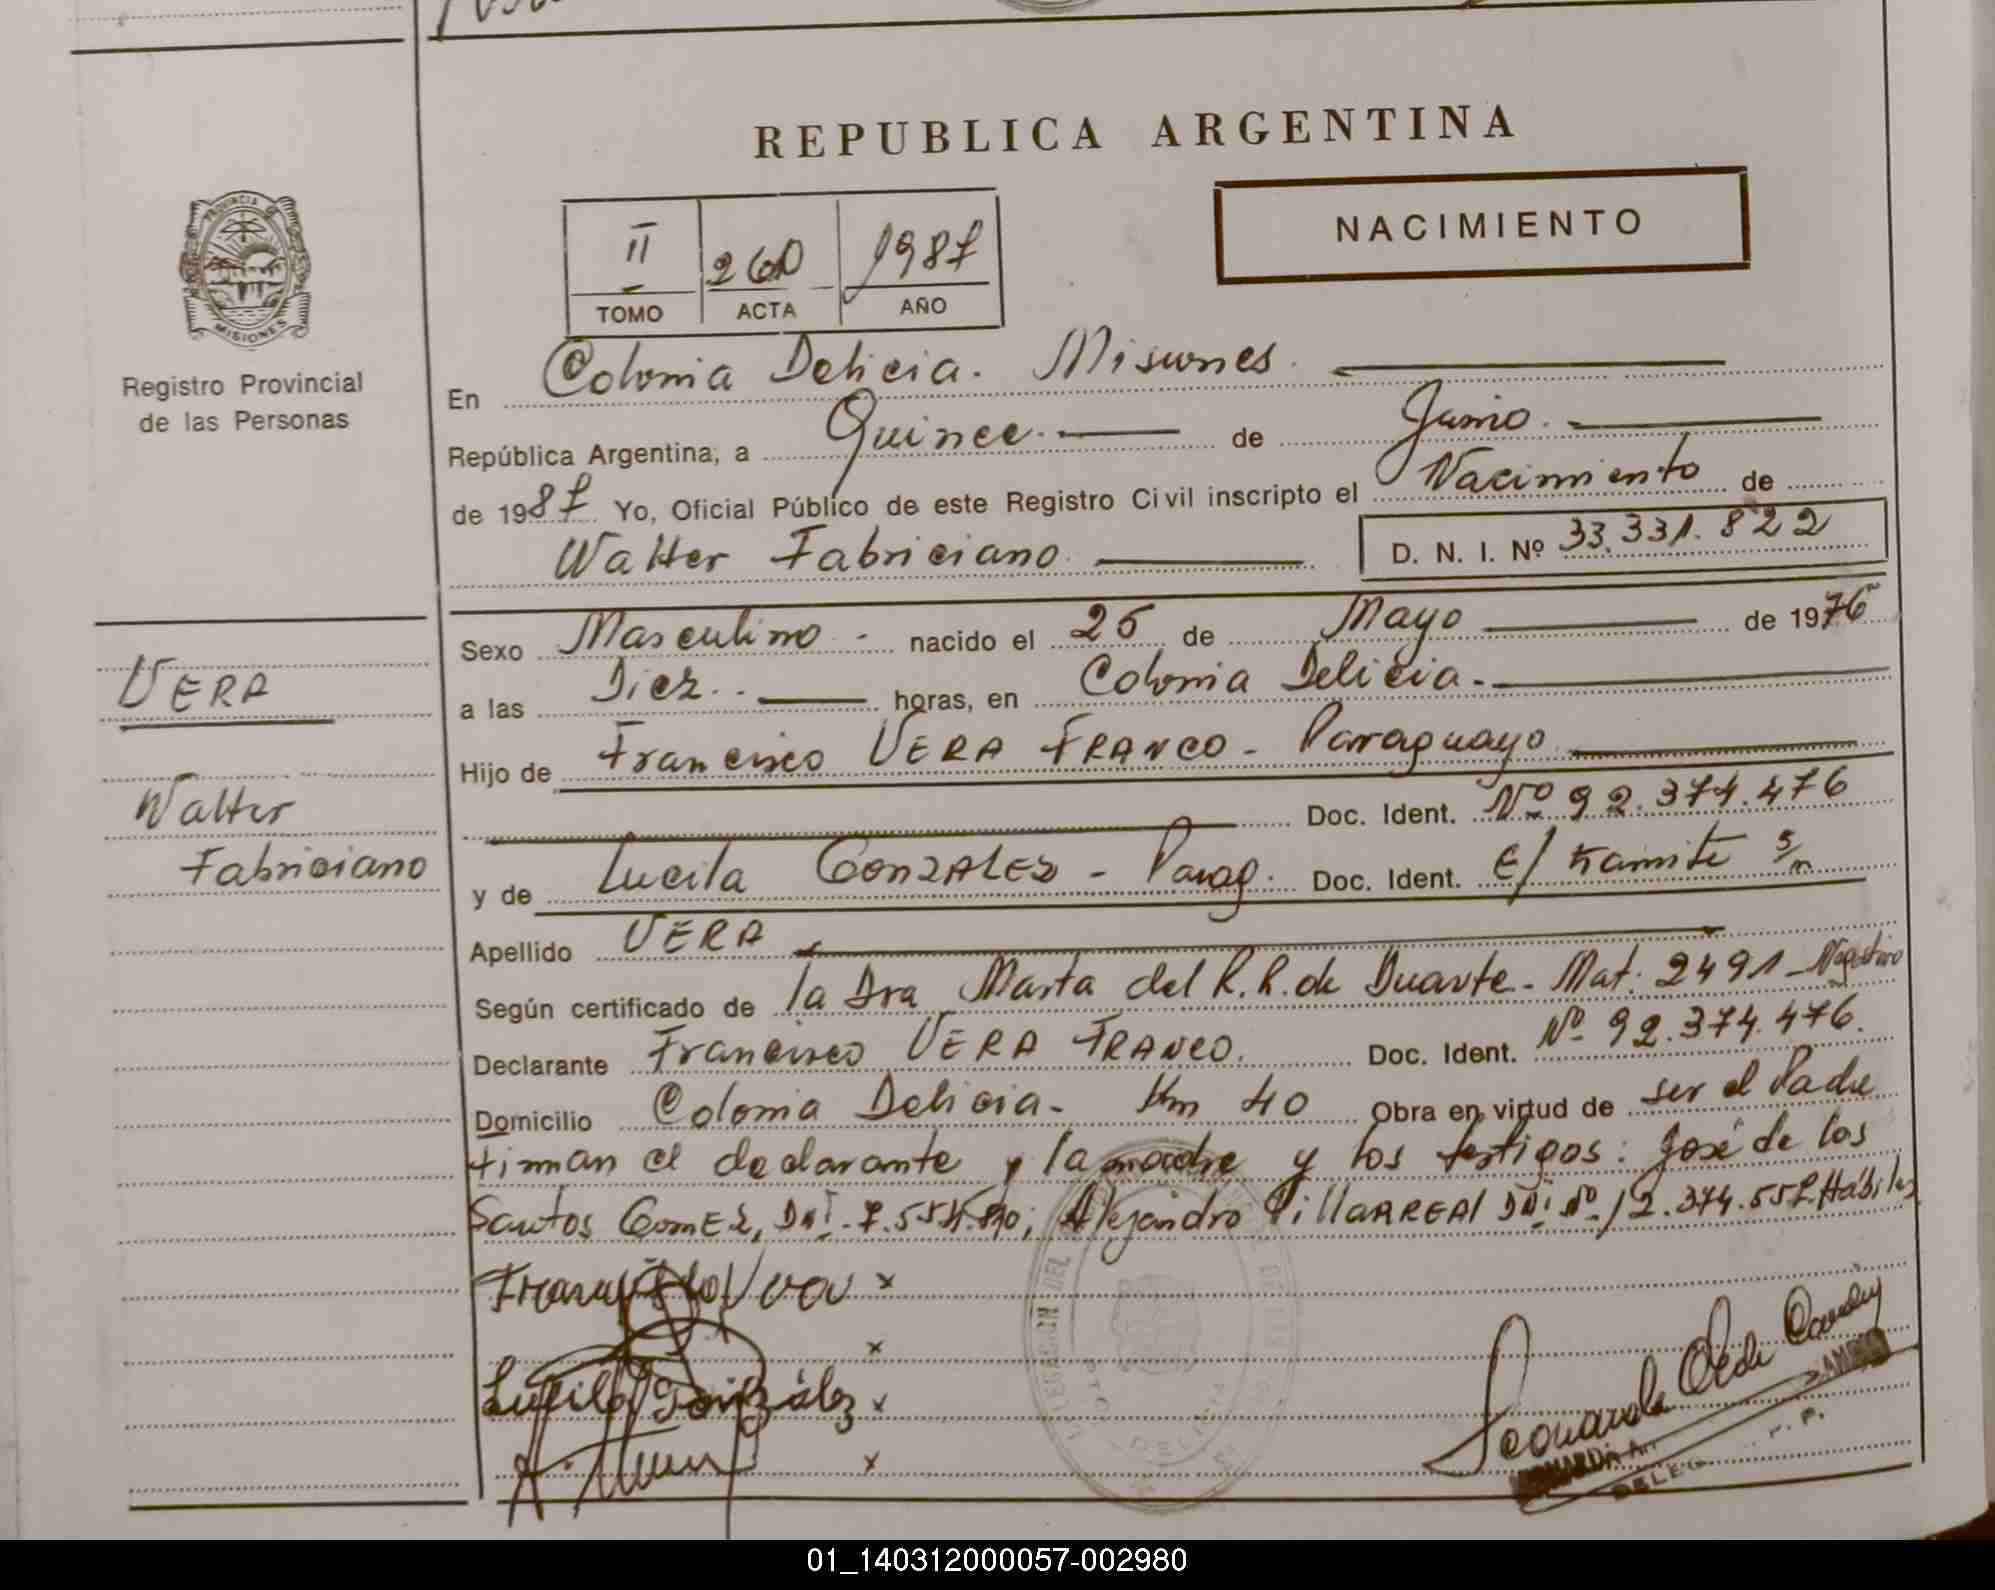 REPUBLICA ARGENTINA
NACIMIENTO
II 260 1987
TOMO ACTA AÑO
PROVINCIA DE
MISIONES
Registro Provincial
de las Personas
En Colonia Delicia. Misiones.
República Argentina, a Quince. de Junio.
de 1987 Yo, Oficial Público de este Registro Civil inscripto el Nacimiento de
Walter Fabriciano. D. N. I. Nº 33.331.822
VERA
Walter
Fabriciano
Sexo Masculino - nacido el 25 de Mayo de 1976
a las Diez.. horas, en Colonia Delicia.
Hijo de Francisco VERA FRANCO - Paraguayo
Doc. Ident. Nº 92.374.476
y de Lucila GONZALEZ - Parag. Doc. Ident. E/ tramite s/n
Apellido VERA
Según certificado de la Dra Marta del R.R. de Duarte - Mat. 2491 - Negativo
Declarante Francisco VERA FRANCO. Doc. Ident. Nº 92.374.476.
Domicilio Colonia Delicia - Km 40 Obra en virtud de ser el Padre
firman el declarante y la madre y los testigos: José de los
Santos GOMEZ, DNI. Alejandro VillARREAl DNI Nº 12.374.557 Hábiles
x
x
Lucila González x
x
DELEGACION DEL